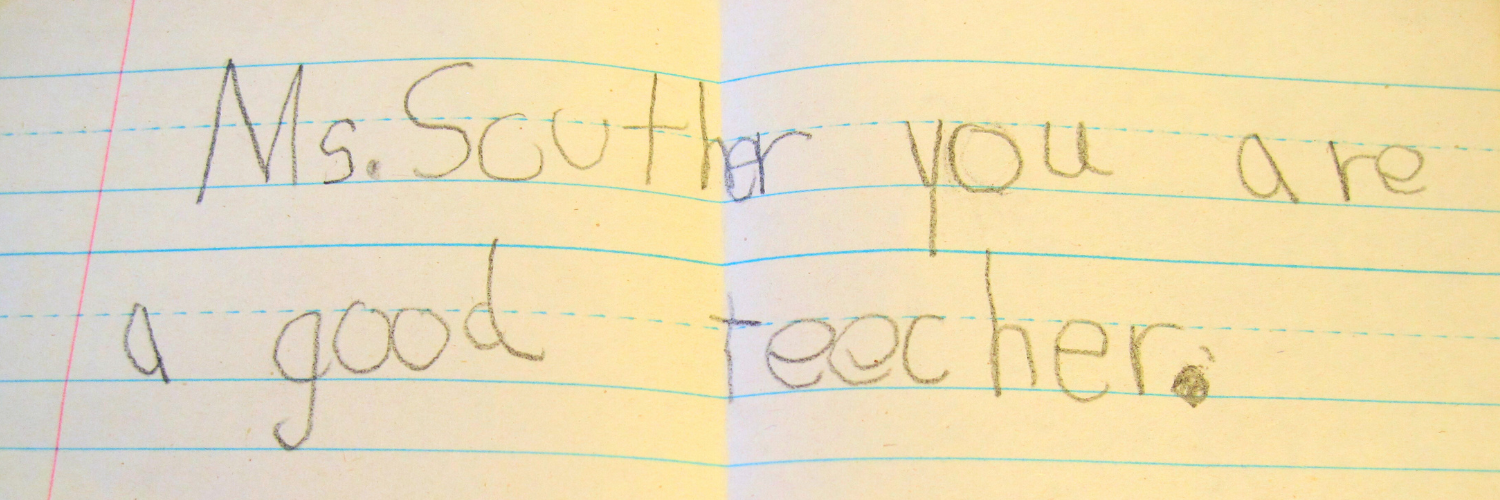 Ms. Scuther you are
a good teecher.